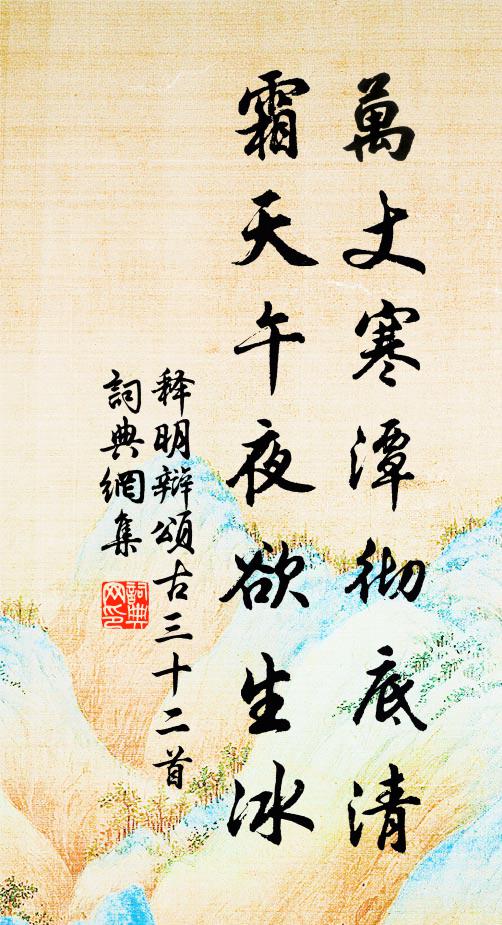 萬丈寒潭徹底清
霜天午夜欲生冰
释明辯頌古三十二首
詞典網集
詞典
网印